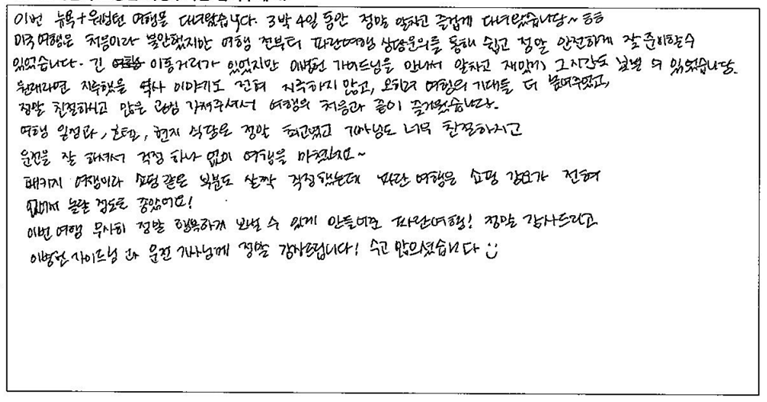 이번 뉴욕+워싱턴 여행을 다녀왔습니다. 3박 4일 동안 정말 알차고 즐겁게 다녀왔습니당~ ㅎㅎ
미국여행은 처음이라 불안했지만 여행 전부터 파란여행 상담문의를 통해 쉽고 정말 안전하게 잘 준비할 수
있었습니다. 긴 이동거리가 있었지만 이병헌 가이드님을 만나서 알차고 재밌게 그 시간도 보낼 수 있었습니당.
원래라면 지루했을 역사 이야기도 전혀 지루하지 않고, 오히려 여행의 기대를 더 높여주었고,
정말 친절하시고 많은 관심 가져주셔서 여행의 처음과 끝이 즐거웠습니다.
여행 일정과, 호텔, 현지 식당도 정말 최고였고 기사님도 너무 친절하시고
운전을 잘 해주셔서 걱정 하나 없이 여행을 마쳤어요~
패키지 여행이라 쇼핑 같은 부분도 살짝 걱정했는데 파란 여행은 쇼핑 강요가 전혀
없어서 놀랄 정도로 좋았어요!
이번 여행 무사히 정말 행복하게 보낼 수 있게 만들어준 파란여행! 정말 감사드리고
이병헌 가이드님과 운전 기사님께 정말 감사드립니다! 수고 많으셨습니다